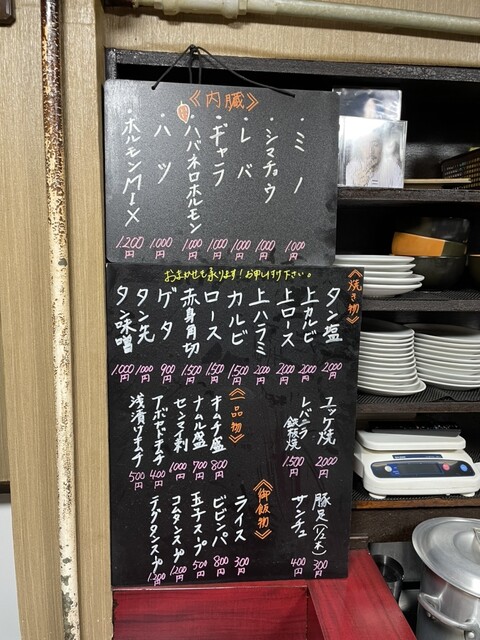 《内臓》
・ミノ 1000円
・シマチョウ 1000円
・レバ 1000円
・ギャラ 1000円
・ハバネロホルモン 1000円
・ハツ 1000円
・ホルモンMIX 1200円
おまかせも承ります！お申し付け下さい。
《焼き物》
タン塩 2000円
上カルビ 2000円
上ロース 2000円
上ハラミ 2000円
カルビ 1500円
ロース 1500円
赤身角切 1500円
ゲタ 900円
タン先 1000円
タン味噌 1000円
ユッケ焼 2000円
レバニラ鉄板焼 1500円
豚足(1/2本) 300円
サンチュ 400円
《一品物》
キムチ盛 800円
ナムル盛 700円
センマイ刺 1000円
アボカドキムチ 400円
浅漬けキムチ 500円
《御飯物》
ライス 300円
ビビンパ 800円
玉子スープ 500円
コムタンスープ 1200円
テグタンスープ 1200円